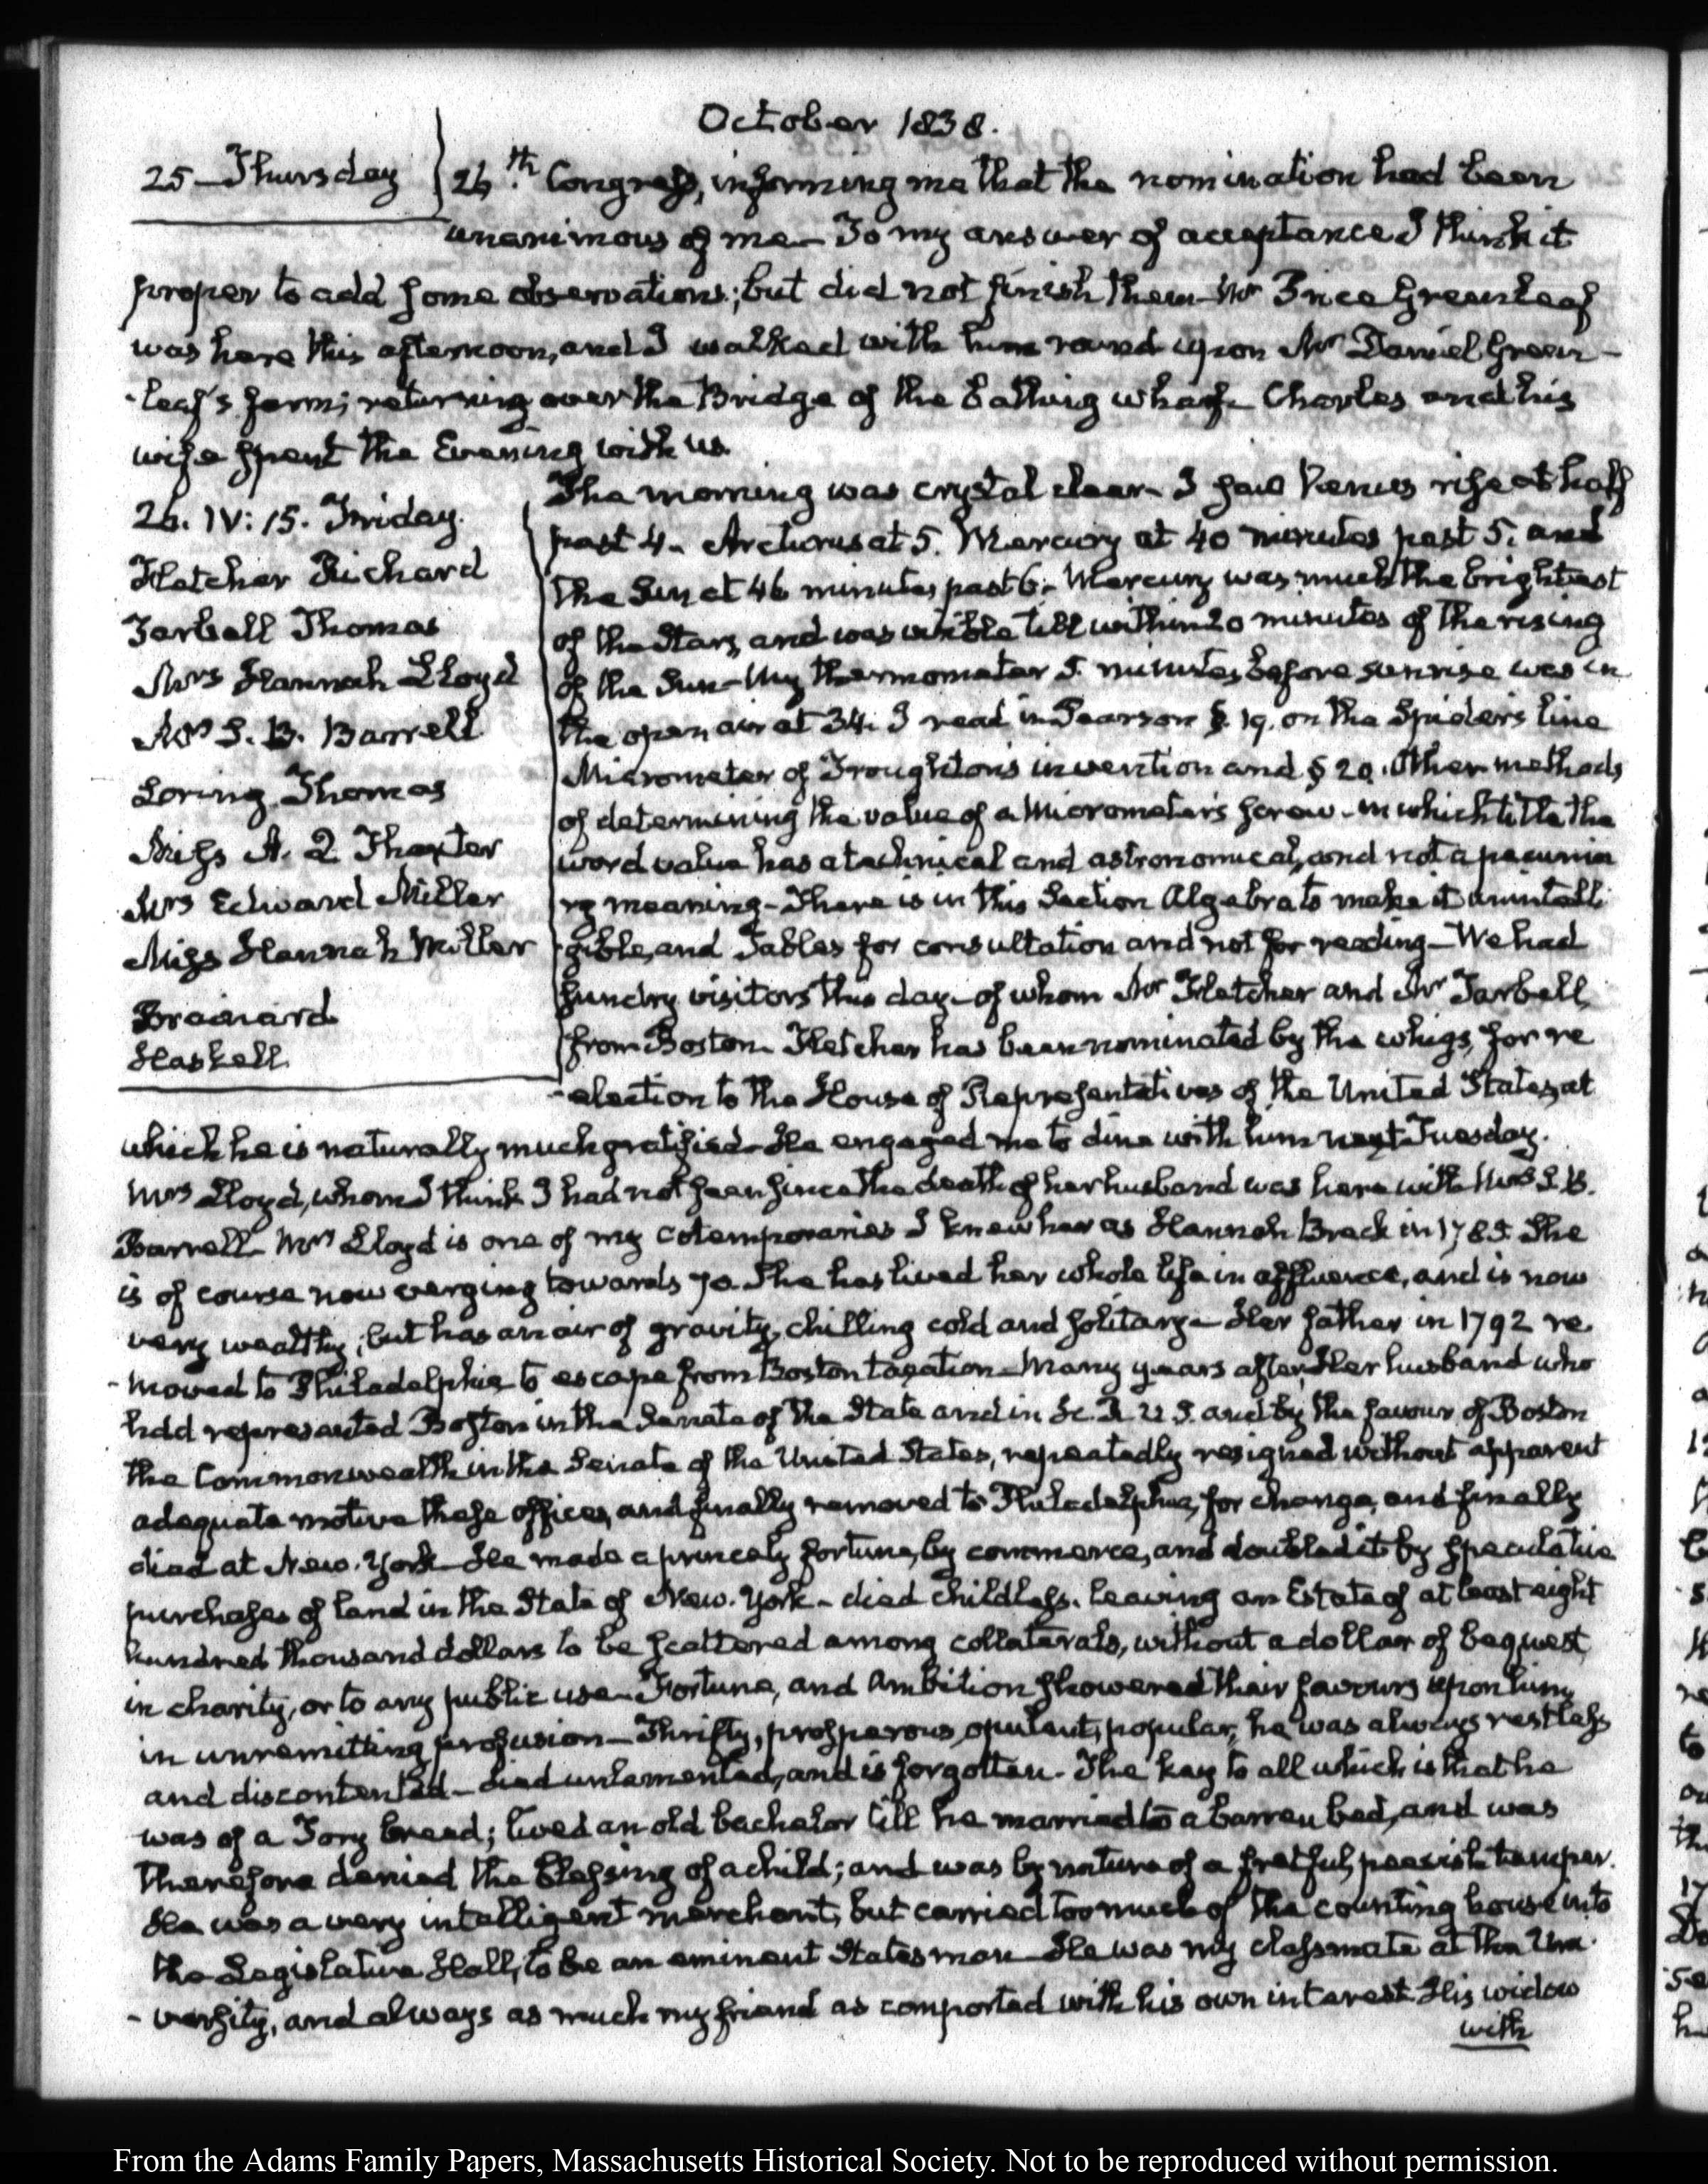 October 1838.
25 Thursday
26th. Congress, informing me that the nomination had been
unanimous of me — To my answer of acceptance I think it
proper to add some observations; but did not finish them — Mr Price Greenleaf
was here this afternoon, and I walked with him round upon Mr Daniel Green-
-leaf's farm; returning over the Bridge of the Bathing wharf — Charles and his
wife spent the Evening with us.
26. IV: 15. Friday.
Fletcher Richard
Tarbell Thomas
Mrs Hannah Lloyd
Mrs S. B. Barrell
Loring Thomas
Miss A. Q Thaxter
Mrs Edward Miller
Miss Hannah Miller
Brainard
Haskell
The morning was crystal clear — I saw Venus rise at half
past 4 — Arcturus at 5. Mercury at 40 minutes past 5. and
the Sun at 46 minutes past 6 — Mercury was much the brightest
of the Stars, and was visible till within 20 minutes of the rising
of the Sun — My thermometer 5 minutes before sunrise was in
the open air at 34. I read in Pearson §. 19. on the Spider's line
Micrometer of Troughton's invention and § 20. Other methods
of determining the value of a Micrometer's screw — in which title the
word value has a technical and astronomical, and not a pecunia
ry meaning — There is in this Section Algebra to make it unintelli
gible, and Tables for consultation and not for reading — We had
sundry visitors this day — of whom Mr Fletcher and Mr Tarbell
from Boston — Fletcher has been nominated by the whigs, for re
-election to the House of Representatives of the United States, at
which he is naturally much gratified — He engaged me to dine with him next Tuesday.
Mrs Lloyd, whom I think I had not seen since the death of her husband was here with Mrs S. B.
Barrell — Mrs Lloyd is one of my cotemporaries I knew her as Hannah Breck in 1785. She
is of course now verging towards 70. She has lived her whole life in affluence, and is now
very wealthy; but has an air of gravity, chilling cold and solitary — Her father in 1792 re
-moved to Philadelphia to escape from Boston taxation — Many years after, Her husband who
had represented Boston in the Senate of the State and in H. R. U. S. and by the favour of Boston
the Commonwealth in the Senate of the United States, repeatedly resigned without apparent
adequate motive these offices, and finally removed to Philadelphia, for change, and finally
died at New-York — He made a princely fortune, by commerce, and doubled it by speculative
purchases of land in the State of New-York — died childless. leaving an Estate of at least eight
hundred thousand dollars to be scattered among collaterals, without a dollar of bequest
in charity, or to any public use — Fortune, and Ambition showered their favours upon him,
in unremitting profusion — Thrifty, prosperous, opulent, popular, he was always restless
and discontented — died unlamented, and is forgotten — The key to all which is that he
was of a Tory breed; lived an old bachelor till he married to a barren bed, and was
therefore denied the blessing of a child; and was by nature of a fretful, peevish temper.
He was a very intelligent merchant, but carried too much of the counting house into
the Legislative Hall, to be an eminent Statesman — He was my classmate at the Uni
-versity, and always as much my friend as comported with his own interest. His widow
with
From the Adams Family Papers, Massachusetts Historical Society. Not to be reproduced without permission.